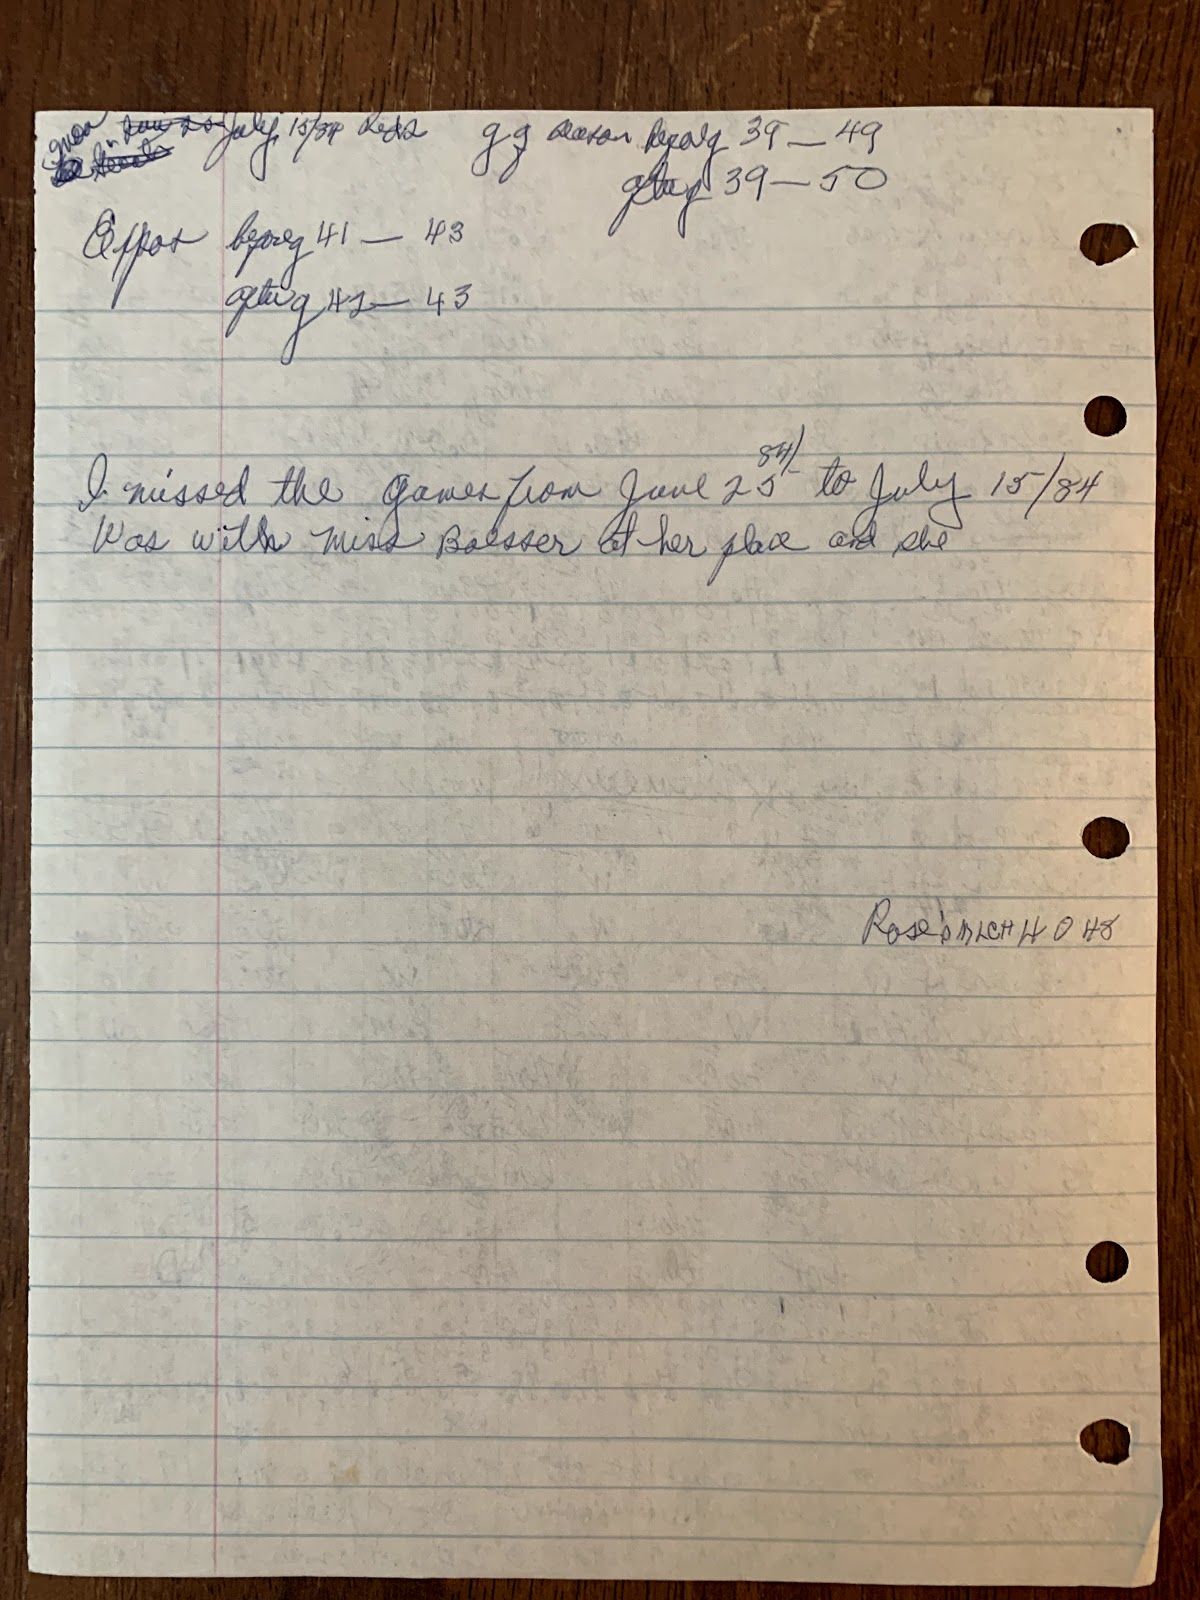 July 15/84 Reds gg season beforeg 39 — 49
afterg 39 — 50
Expos beforeg 41 — 43
afterg 42 — 43
84/
I missed the games from June 25 to July 15/84
Was with Miss Boesser at her place and she
Rose's 40 48